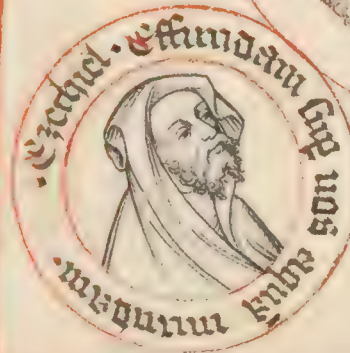 ·Ezechiel· Effundam suꝑ uos aquā mundam·